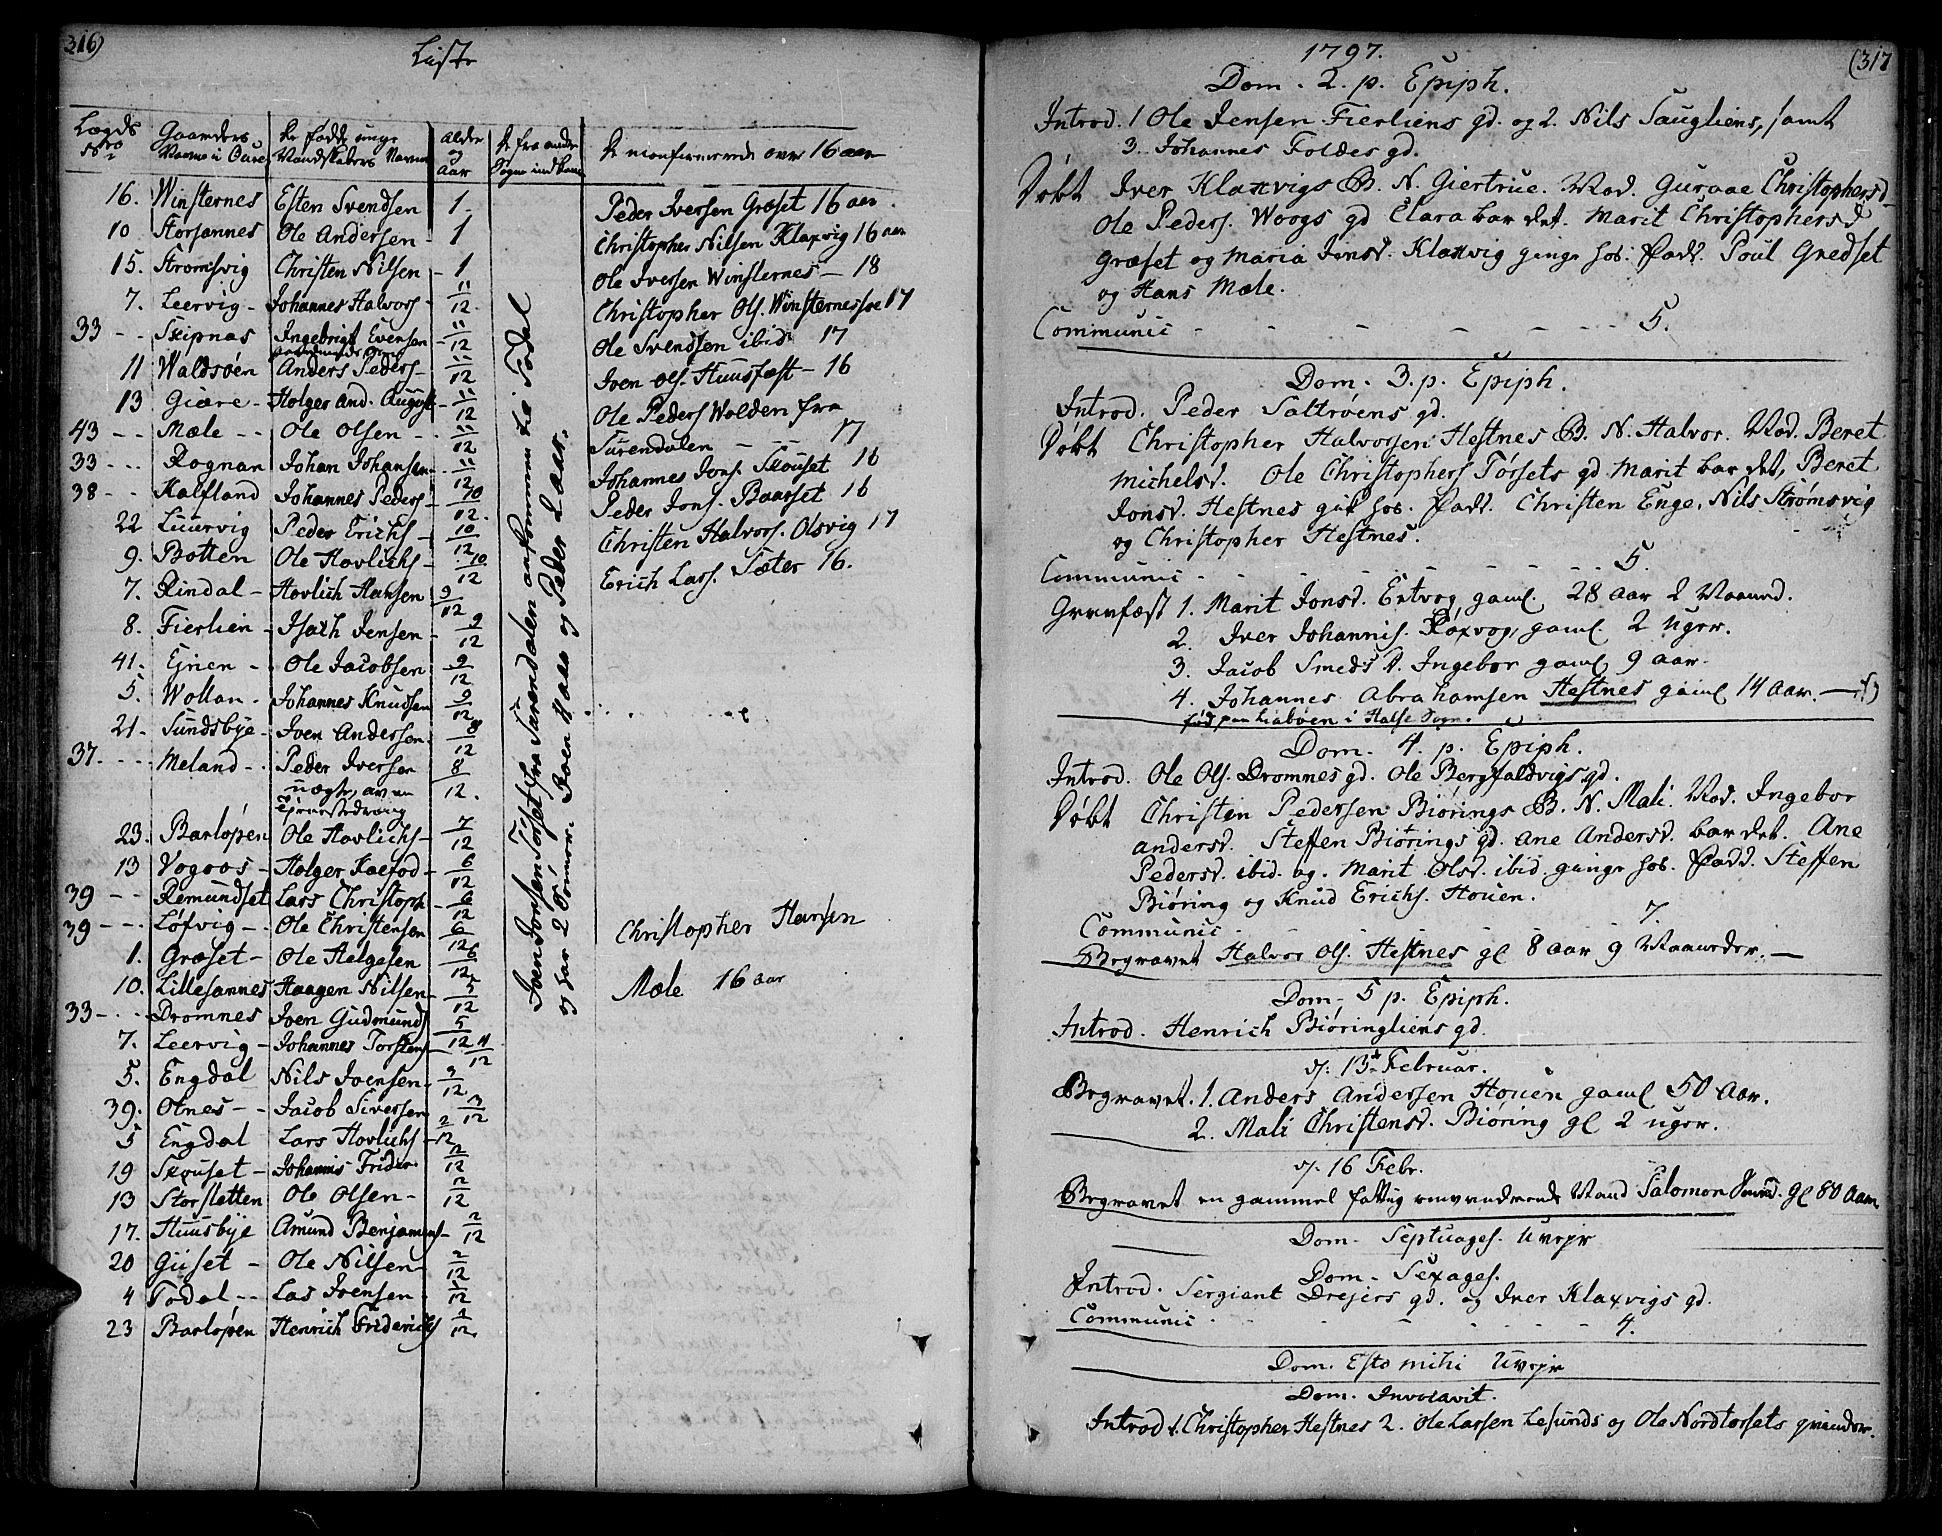 316)
Liste
Lægds Nro
Gaardens Navne i Aure
De fødde unge Mandskabers Navne
Alder og Aar
De fra andre Sogne indkomne
De uconfirmerede over 16 aar
16. Winsternes Esten Svendsen 1.
10 Storsannes Ole Andersen - 1
15. Stromsvig Christen Nilsen - 1
7. Leervig - Johannes Halvors - 11/12.
33 - - Skipnas Ingebrigt Evensen - 11/12
11 Waldsøen Anders Peders - 11/12
13 Giære - Holger And. August - 11/12
43 - - Mæle - - Ole Olsen - - 11/12
33 - - - Rognan Johan Johansen - 11/12
38 - - Kalfland Johannes Peders - 10/12.
22 Luurvig Peder Erichs - 10/12
9. Botten Ole Hovlichs - 10/12
7. Rindal - Hovlich Hansen 9/12
8. Fierlien - Isach Jensen - 9/12
41. Ejnen - - Ole Jacobsen 9/12
5. Wollan - Johannes Knudsen 9/12
21. Sundsbye - Joen Andersen 8/12
37 - - - Meland - - Peder Iversen 8/12.
23. Barlopen Ole Hovlichs - 7/12
13 Vogoos - Holger Kaefod - 6/12
39 - - Remundset Lars Christoph - 6/12
39 - - - Løfvig - - Ole Christensen 6/12
1. Græset - Ole Helgesen 6/12
10. Lillesannes Haagen Nilsen - 5/12
33 - - - Dromnes Joen Gudmunds 5/12
7. Leervig - Johannes Torstens 4/12
5. Engdal Nils Joensen - 3/12
39. Otnes - - Jacob Siversen 3/12
5 Engdal Lars Hovlichs - 2/12
19 Skouset - Johannis Frider. 2/12
13 Storsletten Ole Olsen - 2/12
17. Huusbye Amund Benjamins - 2/12
20 Giiset - Ole Nilsen - 2/12
4 Todal - - Las Joensen - 1/12
23 Barlopen Henrich Friderichs 1/12.
Joen Jonsen Torset fra Surendalen ankommen til Todal
og har 2 Sønner. Joen 4 aar og Peder 2 aar.
Peder Iversen Græset 16 aar.
Christopher Nilsen Klaxvig 16 aar
Ole Iversen Winsternes - 18
Christopher Ols. Winsternesse 17
Ole Svendsen ibid. 17
Joen Ols. Huusfæst - 16
Ole Peders Wolden fra
Surendalen - - 17
Johannes Jons. Skouset 16
Peder Jons. Baarset 16
Christen Halvors. Olsvig 17
Erich Lars. Sæter 16.
Christopher Hansen
Mæle 16 aar
(317
1797.
Dom. 2. p. Epiph.
Introd. 1 Ole Jensen Fierliens gd. og 2. Nils Saugliens, samt
3. Johannes Foldes gd.
Døbt Iver Klaxvigs B. N. Giertrue. Mod. Guraae Christophersd.
Ole Peders. Woogs gd Clara bar det. Marit Christophersd
Græset og Maria Jonsd. Klaxvig ginge hos. Fadd. Poul Gredset
og Hans Mæle.
Communic - - - - - - - 5.
Dom. 3. p. Epiph.
Introd. Peder Saltrøens gd.
Døbt Christopher Halvorsen Hestnes B. N. Halvor. Mod. Beret
Michelsd. Ole Christophers Torsets gd Marit bar det, Beret
Jonsd. Hestnes gik hos. Fadd. Christen Enge, Nils Strømsvig
og Christopher Hestnes.
Communic - - - - - - - 5.
Gravfæst 1. Marit Jonsd. Ertvog gaml. 28 aar 2 Maaned.
2. Iver Johannis. Roxvog, gaml. 2 uger.
3. Jacob Smeds D. Ingebor gaml 9 aar.
4. Johannes Abrahamsen Hestnes gaml 14 aar. -
fød paa Liabøen i Halse Sogn.
Dom. 4. p. Epiph.
Introd. Ole Ols. Dromnes gd. Ole Bergfaldvigs gd.
Døbt Christen Pedersen Biørings B. N. Mali. Mod. Ingebor
Andersd. Steffen Biørings gd. Ane Andersd. bar det. Ane
Pedersd. ibid. og. Marit Olsd. ibid. ginge hos. Fadd. Steffen
Biøring og Knud Erichs. Houen.
Communic - - 7.
Begravet Halvor Ols. Hestnes gl 8 aar 9 Maaneder. -
Dom. 5 p. Epiph.
Introd. Henrich Biøringliens gd.
d. 13de Februar.
Begravet. 1. Anders Andersen Houen gaml 50 Aar.
2. Mali Christensd. Biøring gl 2 uger.
d. 16 Febr.
Begravet en gammel fattig omvandrende Mand Salomon gl 80 Aar
Dom. Septuages. Uvejr
Dom. Sexages.
Introd. Sergiant Drejers gd. og Iver Klaxvigs gd.
Communic - - - - - 4.
Dom. Esto mihi Uvejr
Dom. Invocavit.
Introd 1. Christopher Hestnes 2. Ole Larsen Lesunds og Ole Nordtorsets qvinder.